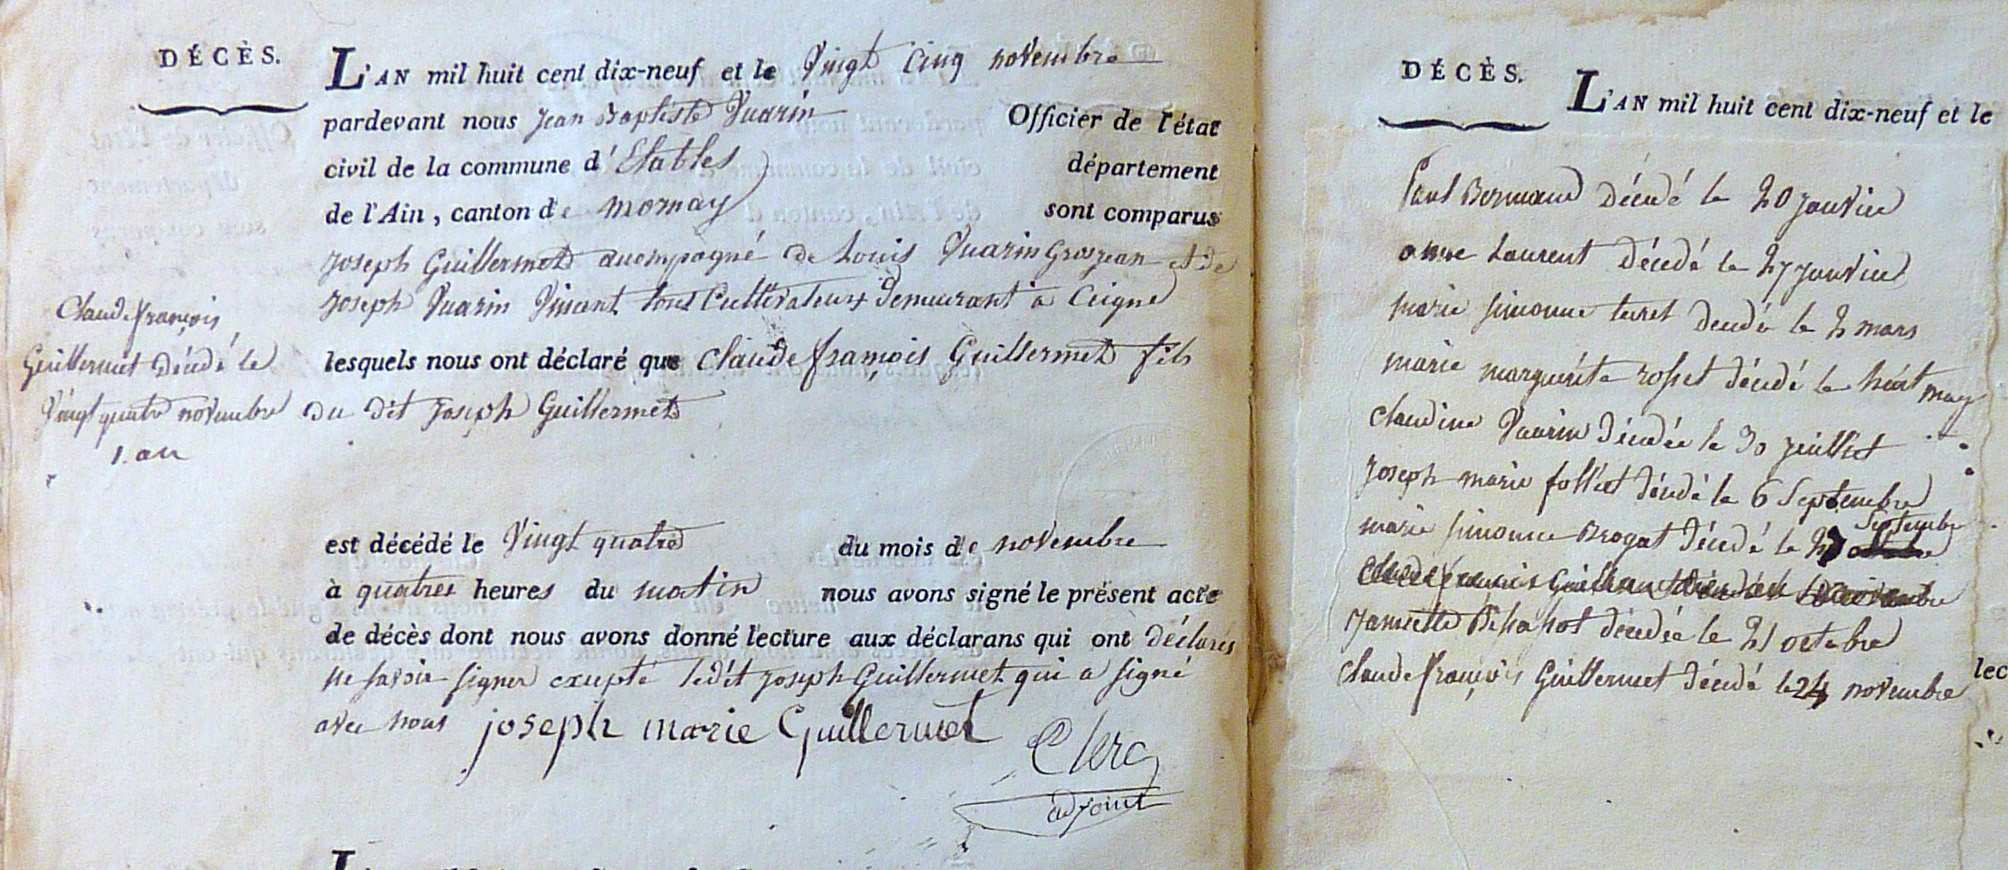 DÉCÈS.
L'AN mil huit cent dix-neuf et le Vingt Cinq novembre
pardevant nous Jean Baptiste Vuarin Officier de l'état
civil de la commune d'Etables département
de l'Ain, canton de mornay sont comparus
Joseph Guillermet acompagné de Louis Vuarin Grosjean et de
Joseph Vuarin Vincent tous Cultivateurs Demeurant a Ceigne
lesquels nous ont déclaré que Claude françois Guillermet fils
du dit Joseph Guillermet
Claude françois
Guillermet décédé le
Vingt quatre novembre
1. an
est décédé le Vingt quatre du mois de novembre
à quatres heures du matin nous avons signé le présent acte
de décès dont nous avons donné lecture aux déclarans qui ont déclarés
ne savoir signer excepté ledit Joseph Guillermet qui a signé
avec nous joseph marie Guillermet Clerc
adjoint
DÉCÈS.
L'AN mil huit cent dix-neuf et le
Paul décédé le 20 janvier
anne Laurent décédé le 27 janvier
marie simonne décédé le 2 mars
marie marguerite rosset décédé le huit may
Claudine Vuarin décédée le 30 juillet
Joseph marie folliet décédé le 6 Septembre
marie simonne Brogat décédé le 27 Septembre
décédée le 21 octobre
Claude françois Guillermet décédé le 24 novembre
lec